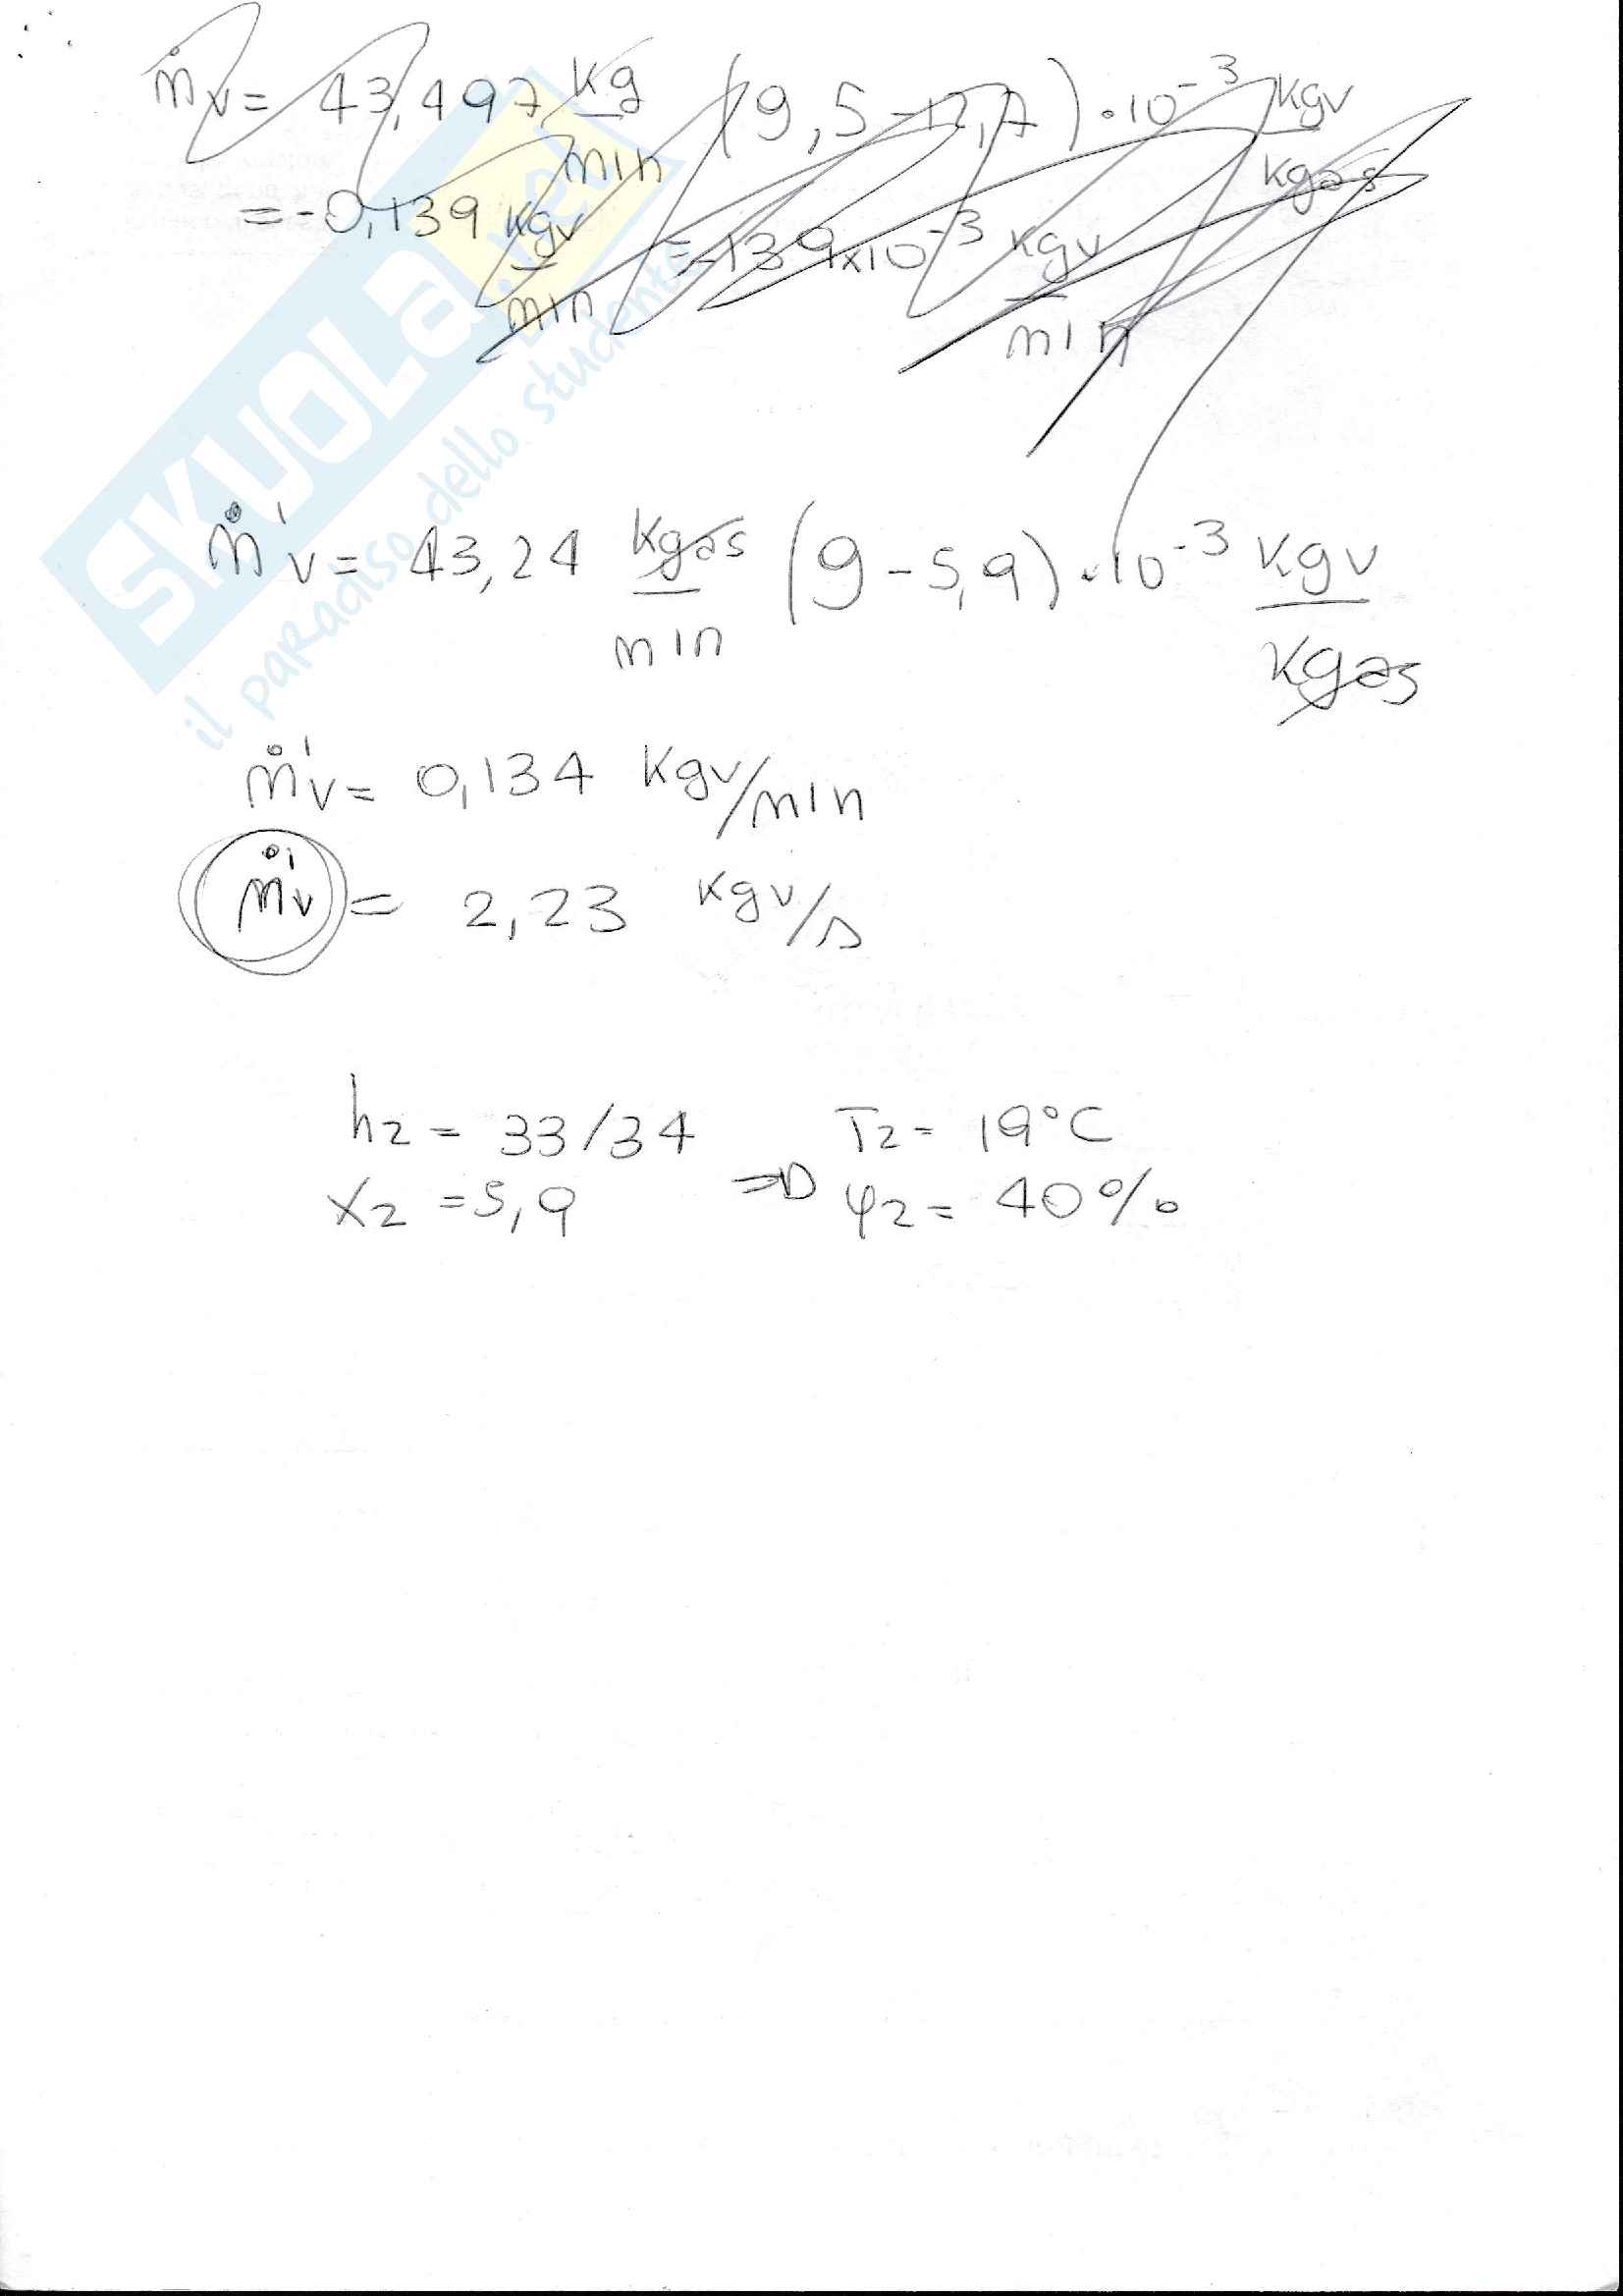 ṁv = 43,497 kg/min (9,5-12,7)·10⁻³ kgv/kgas
= -0,139 kgv/min = -139x10⁻³ kgv/min
SKUOLA.net
il paradiso dello studente
ṁ'v = 43,24 kgas/min (9-5,9)·10⁻³ kgv/kgas
ṁ'v = 0,134 kgv/min
ṁ'v = 2,23 kgv/s
h2 = 33/34 T2 = 19°C
x2 = 5,9 => φ2 = 40%